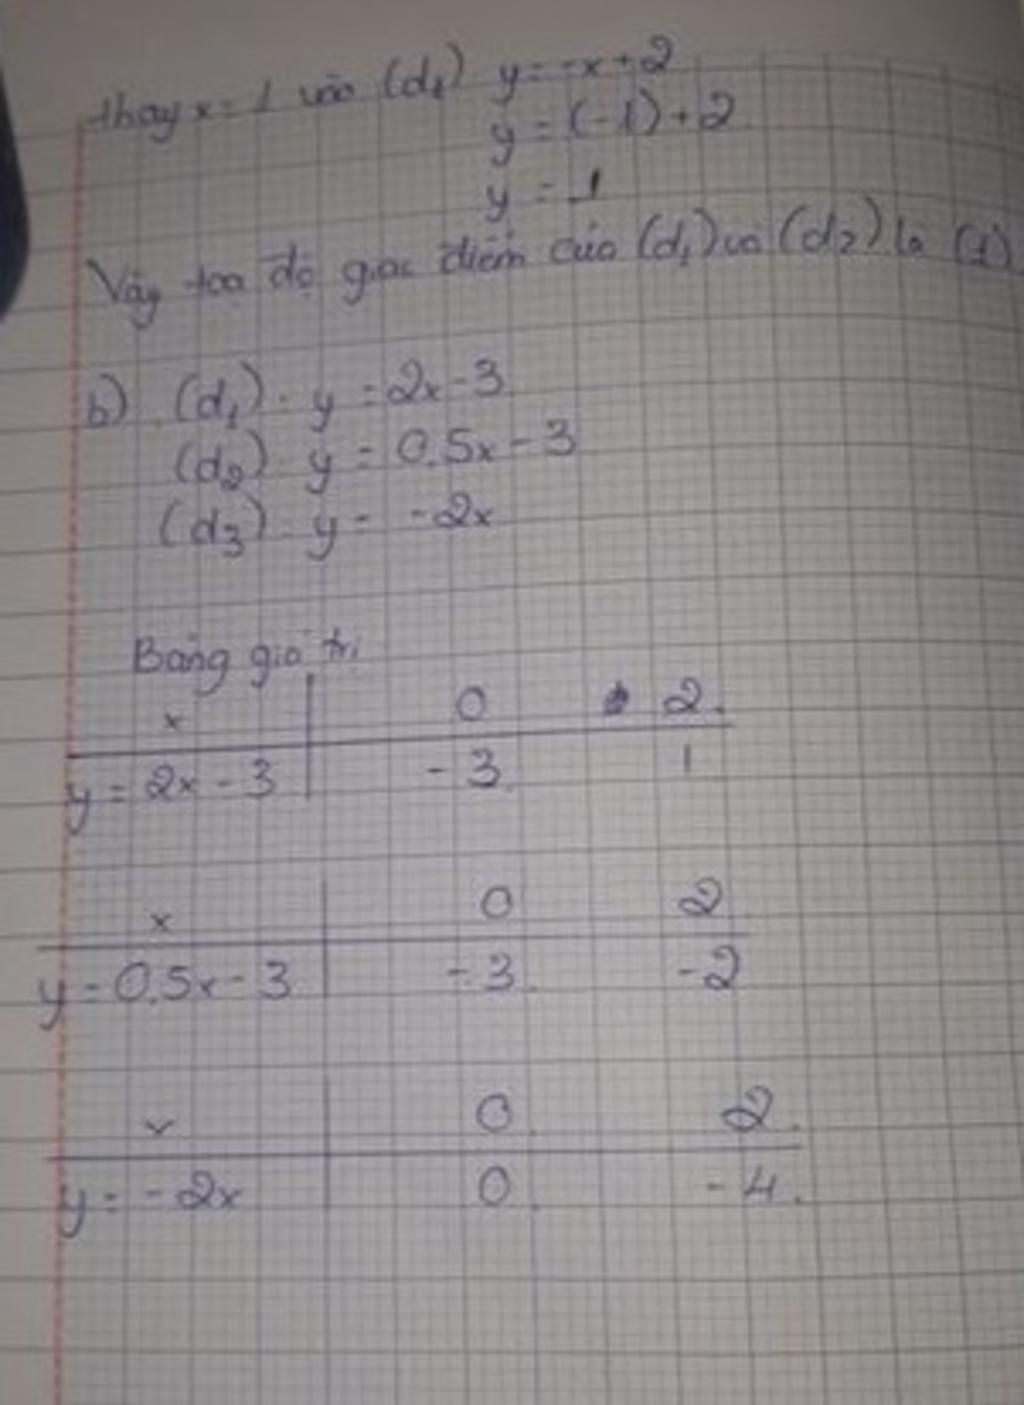 thay x = 1 vào (d1) y = -x + 2
y = (-1) + 2
y = 1
Vậy toạ độ giao điểm của (d1) và (d2) là (1)
b) (d1) : y = 2x - 3
(d2) : y = 0.5x - 3
(d3) : y = -2x
Bảng giá trị
x 0 2
y = 2x - 3 -3 1
x 0 2
y = 0.5x - 3 -3 -2
x 0 2
y = -2x 0 -4